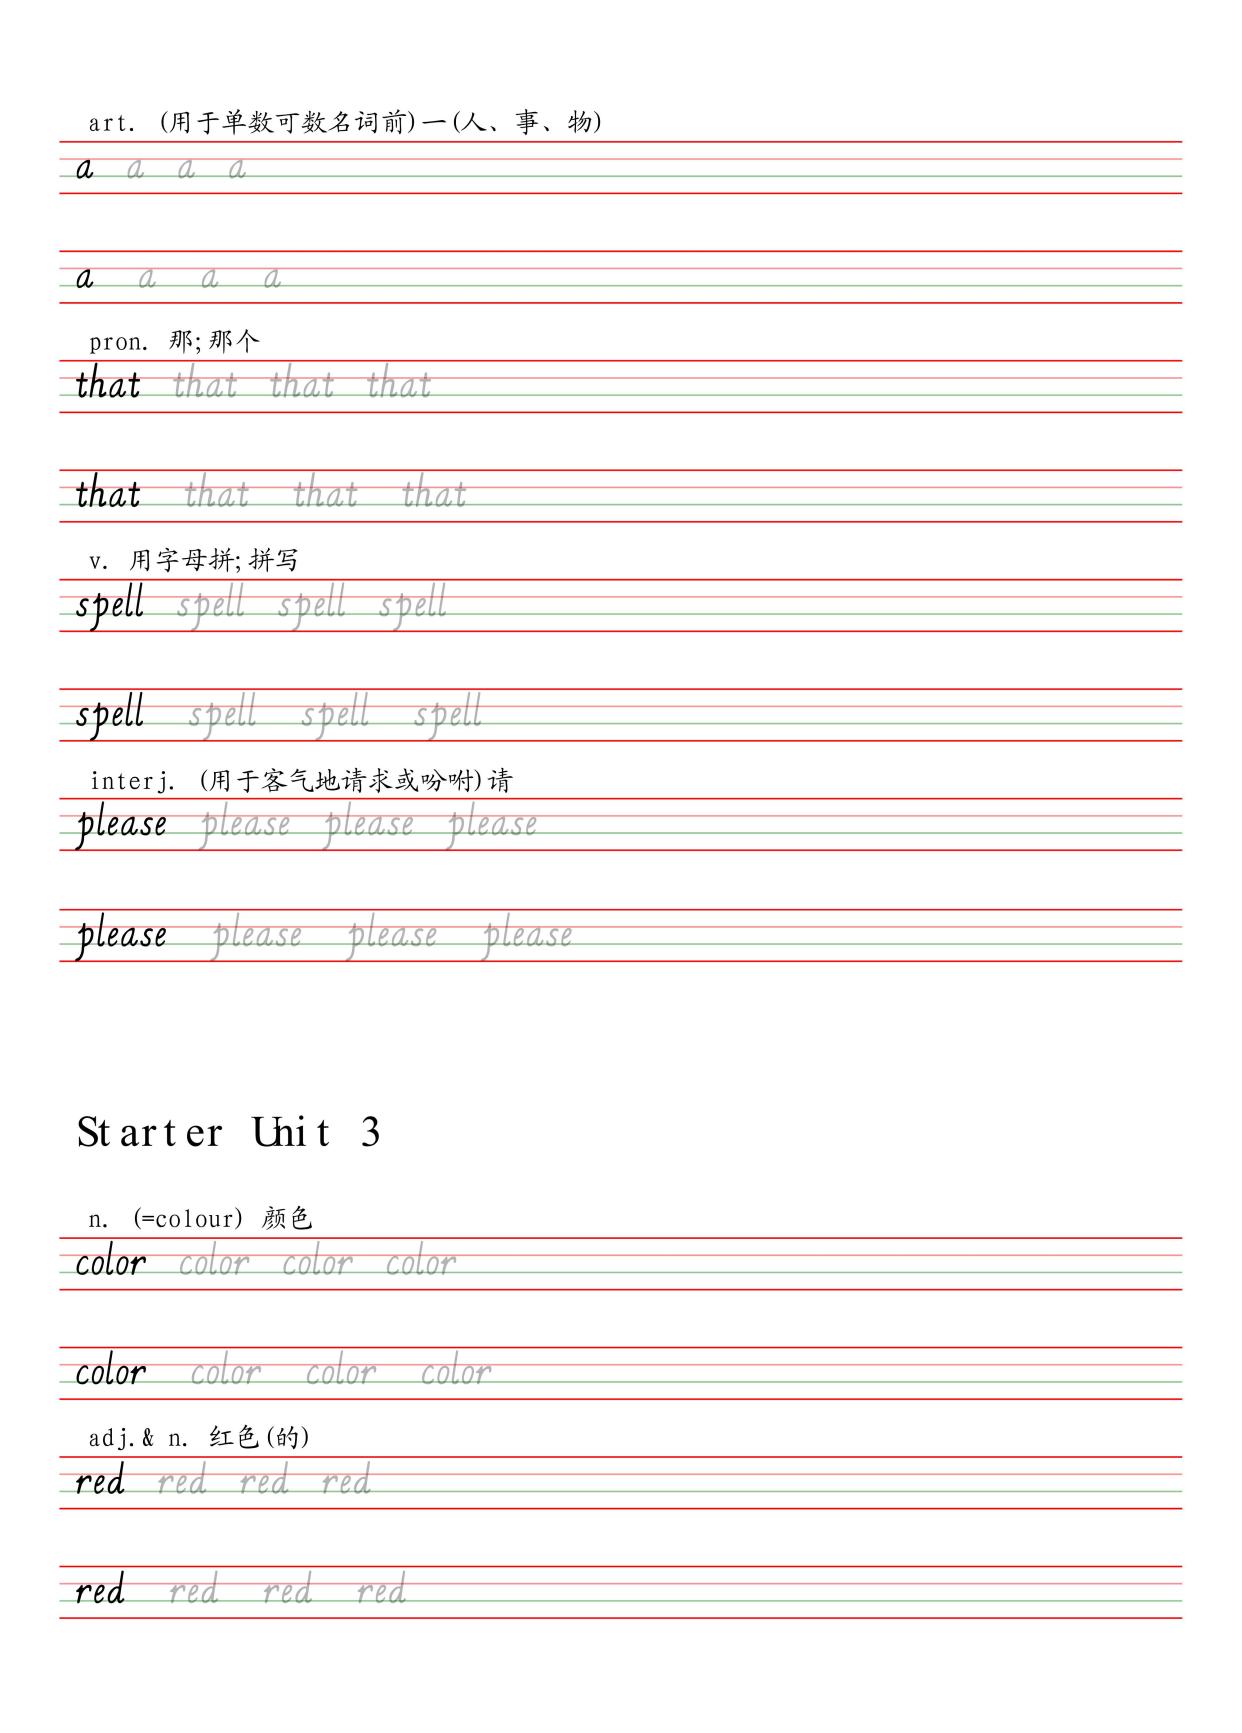 art. (用于单数可数名词前)一(人、事、物)
a a a a
a a a a
pron. 那;那个
that that that that
that that that that
v. 用字母拼;拼写
spell spell spell spell
spell spell spell spell
interj. (用于客气地请求或吩咐)请
please please please please
please please please please
Starter Unit 3
n. (=colour) 颜色
color color color color
color color color color
adj.& n. 红色(的)
red red red red
red red red red